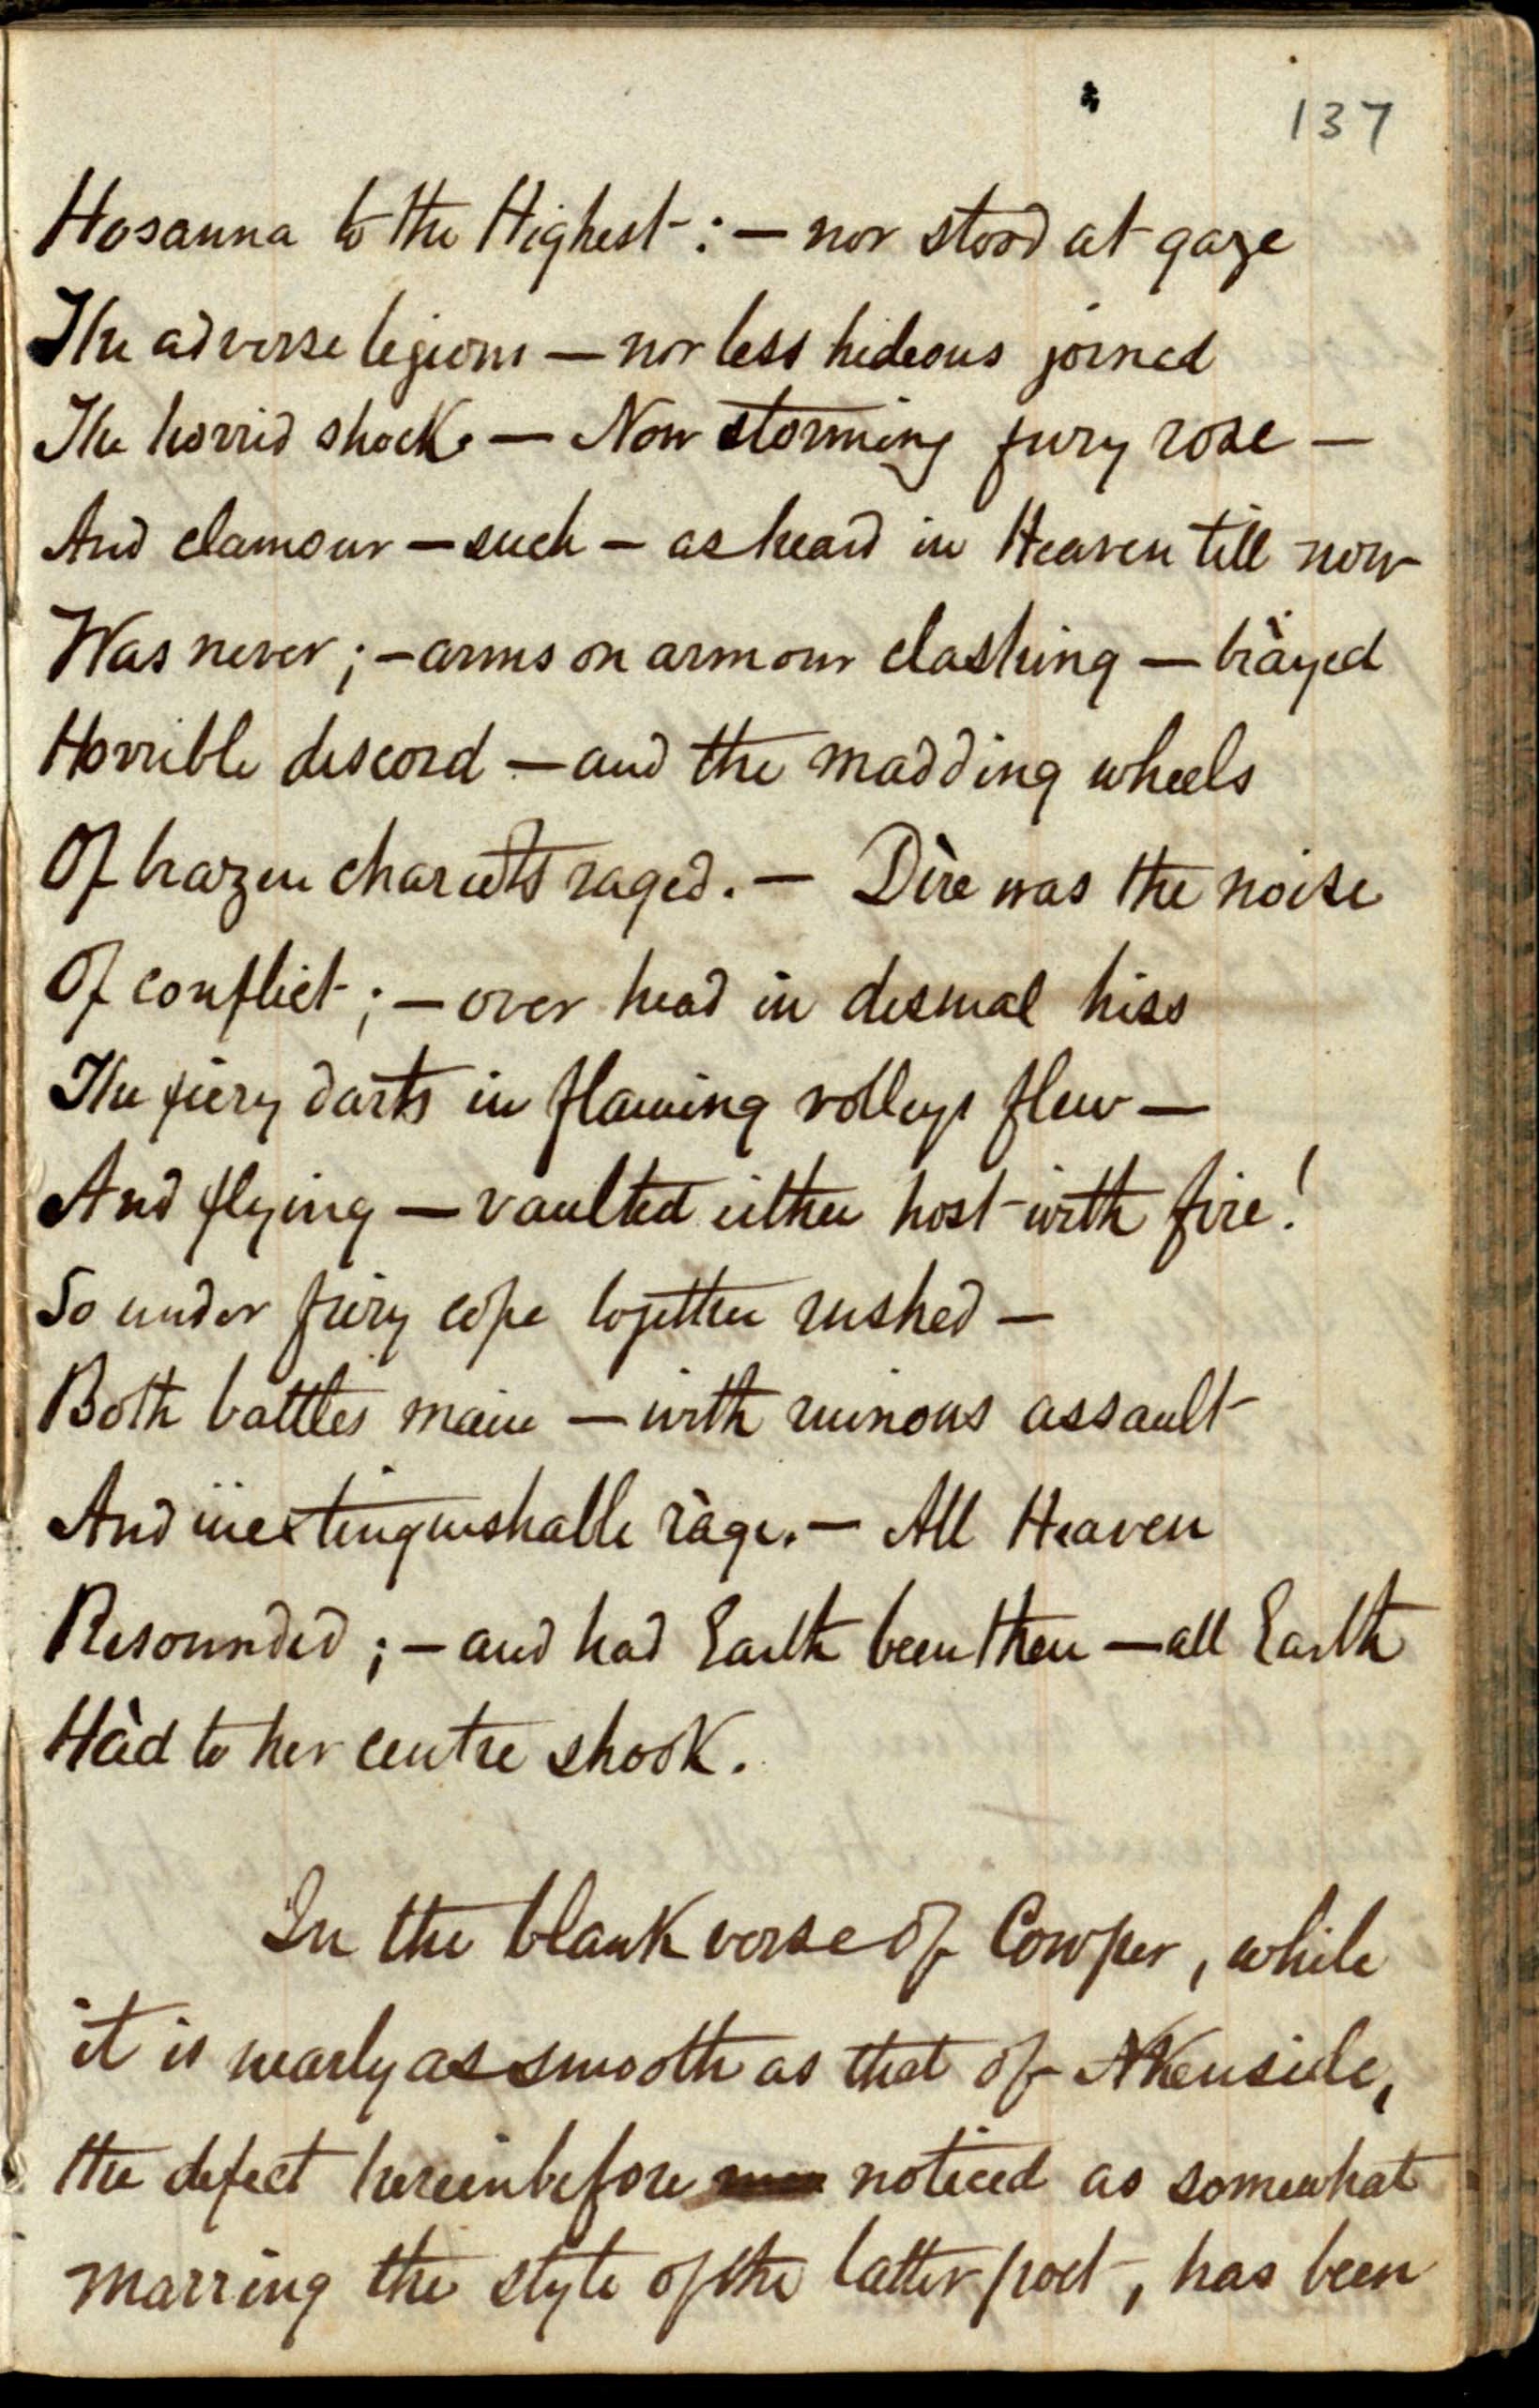 137
Hosanna to the Highest : — nor stood at gaze
The adverse legions — nor less hideous joined
The horrid shock. — Now storming fury rose —
And clamour — such — as heard in Heaven till now
Was never ; — arms on armour clashing — bràyed
Horrible discord — and the madding wheels
Of brazen chariots raged. — Dìre was the noise
Of conflict ; — over head in dismal hiss
The fiery darts in flaming volleys flew —
And flying — vaulted either host with fire !
So under fiery cope together rushed —
Both battles main — with ruinous assault
And inextinguishable ràge. — All Heaven
Resounded ; — and had Earth been then — all Earth
Hàd to her centre shook.
In the blank verse of Cowper, while
it is nearly as smooth as that of Akenside,
the defect hereinbefore noticed as somewhat
marring the style of the latter poet, has been